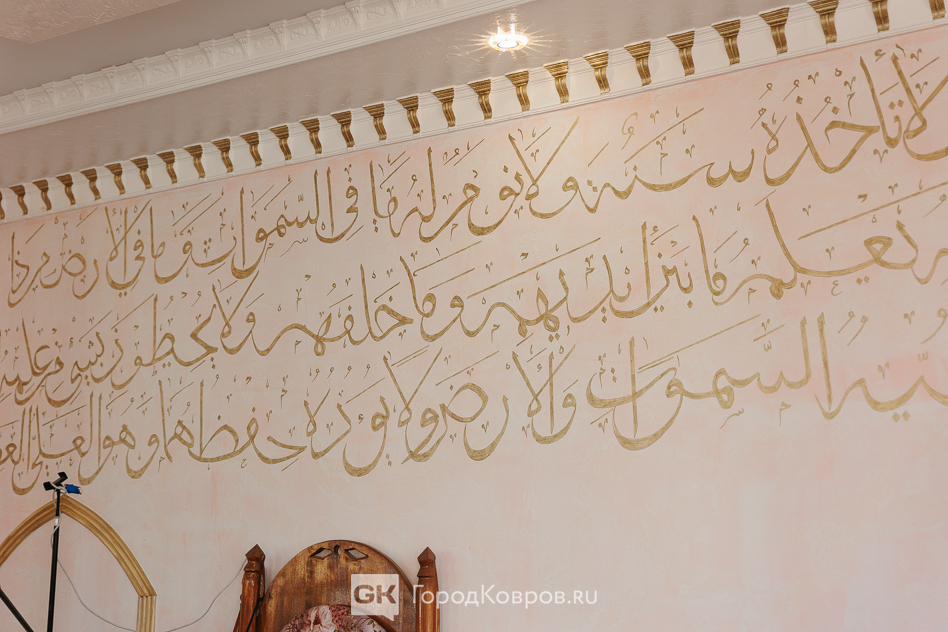 لا تأخذه سنة ولا نوم له ما في السموات وما في الأرض من ذا
يعلم ما بين أيديهم وما خلفهم ولا يحيطون بشيء من علمه
السموات والأرض ولا يؤده حفظهما وهو العلي
GK ГородКовров.ru